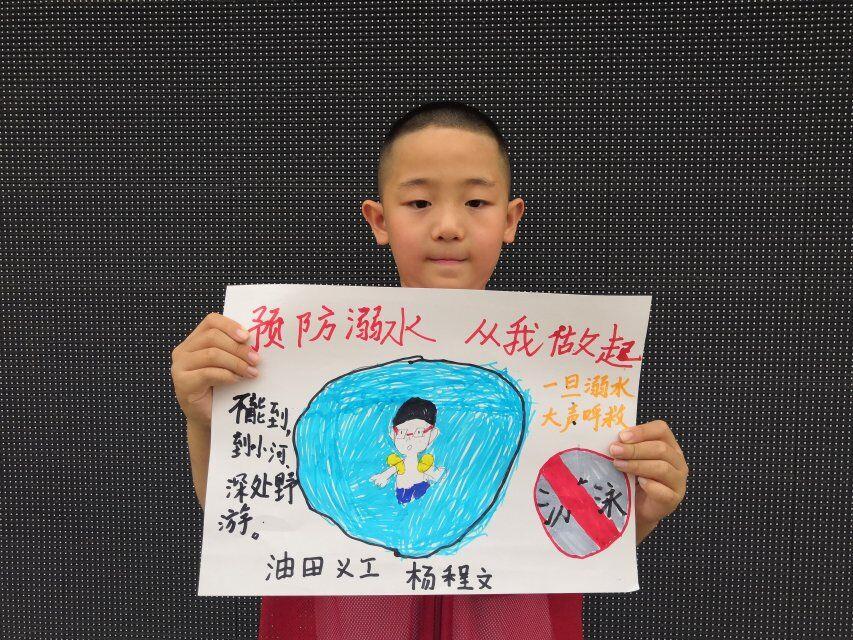 预防溺水 从我做起
一旦溺水
大声呼救
不能到,
到小河、
深处野
游。
游泳
油田义工 杨程文